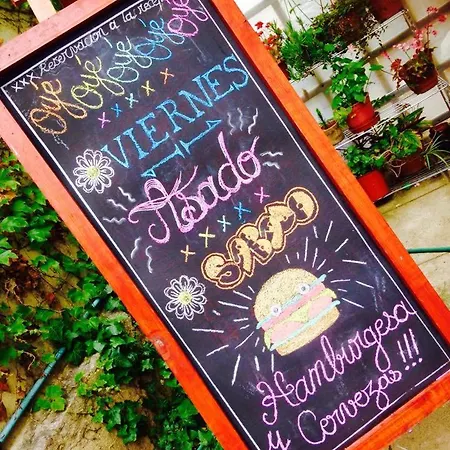 xxx Reservación a la recep
Oye Oye Oye Oye
VIERNES
Asado
SABADO
Hamburgesa
y Cervezas!!!